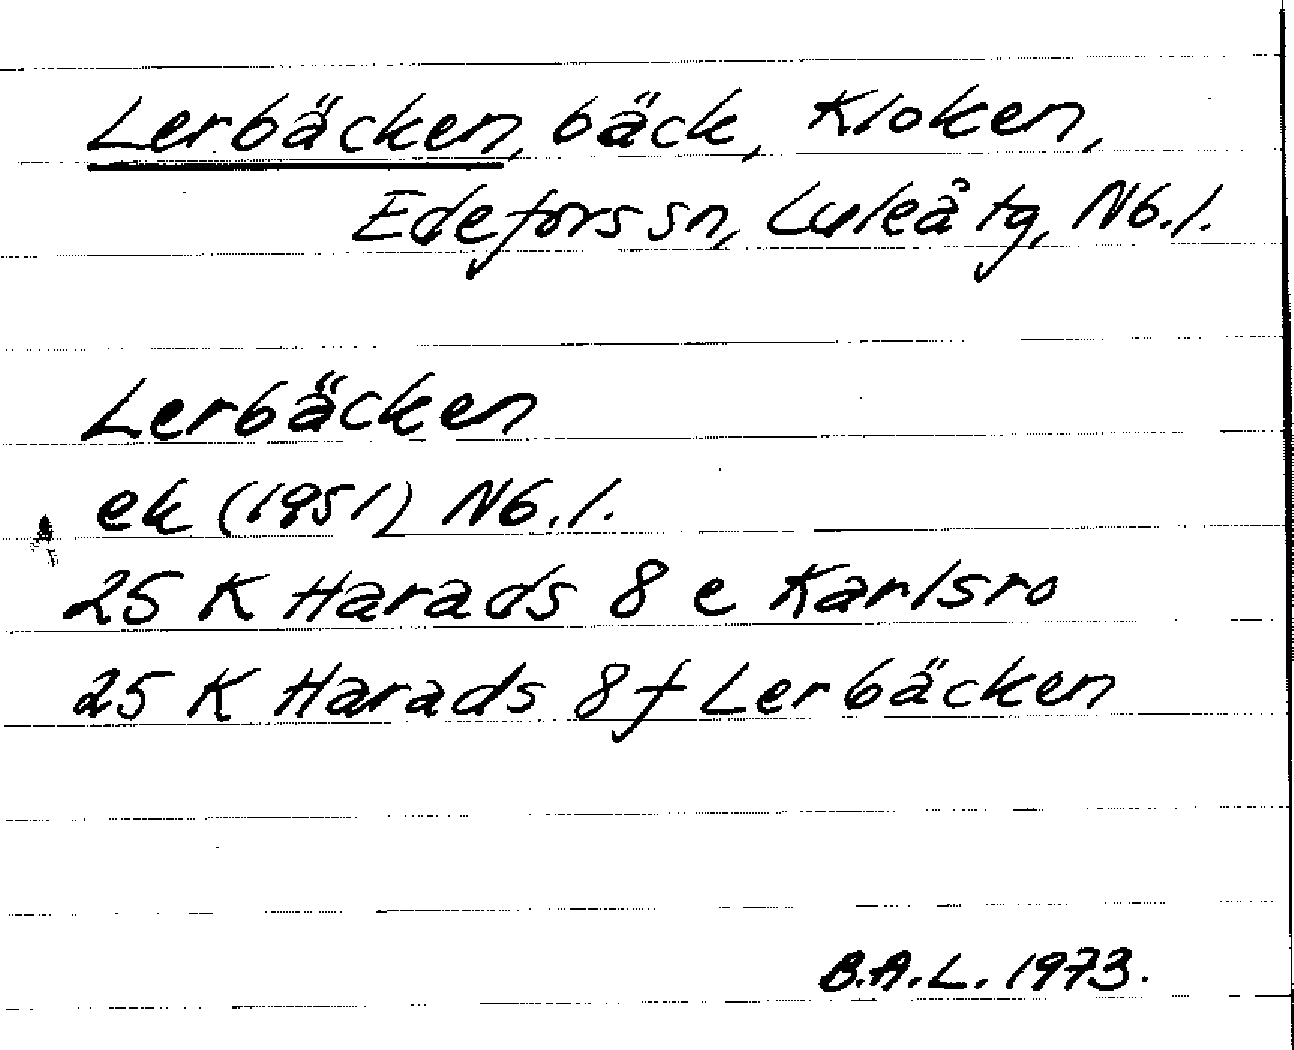 Lerbäcken, bäck, Kloken,
Edefors sn, Luleå tg, Nb. l.
Lerbäcken
ek (1951) Nb. l.
25 K Harads 8 e Karlsro
25 K Harads 8 f Lerbäcken
B.A.L. 1973.